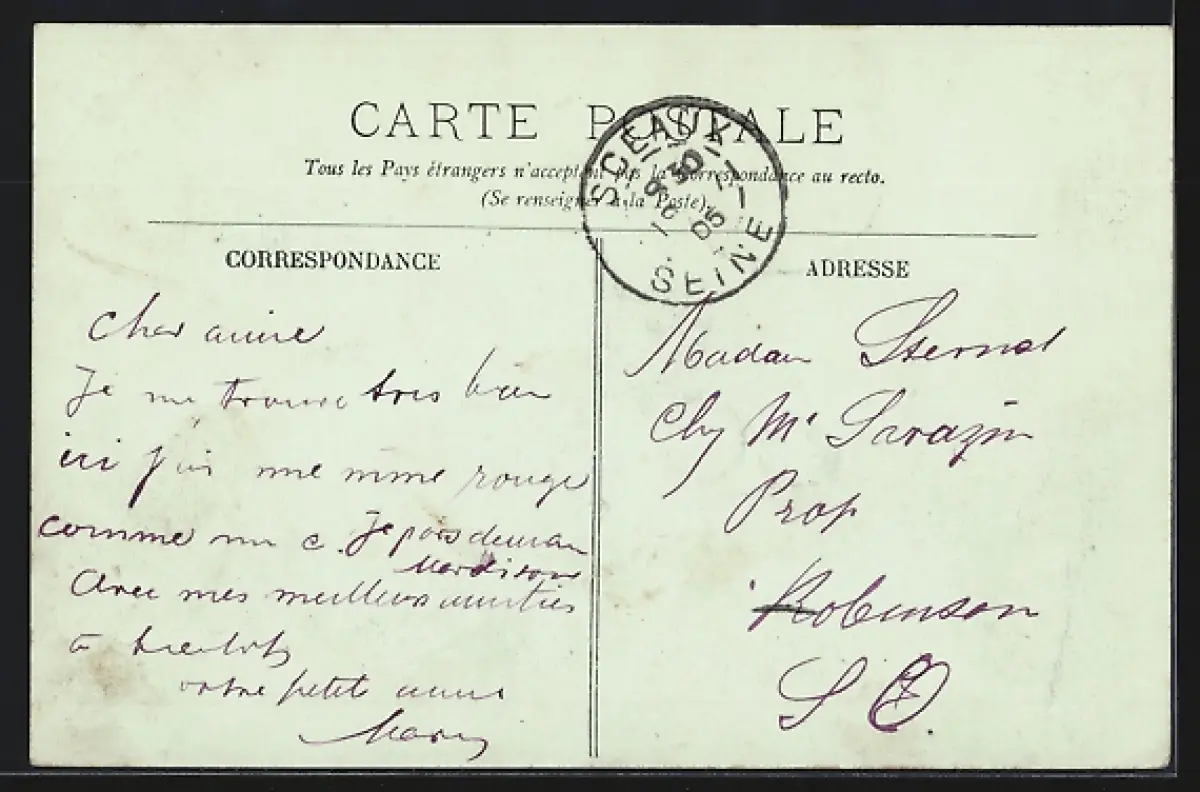 CARTE POSTALE
Tous les Pays étrangers n'acceptent pas la Correspondance au recto.
(Se renseigner à la Poste).
SCEAUX
SEINE
05
CORRESPONDANCE
Cher amie
Je me trouve tres bien
ici j'ai une mine rouge
comme un c. Je pars demain
Avec mes meilleurs amities
a bientot
votre petit amie
ADRESSE
Madam Sternal
Chez Mr Sarazin
Prop
Robinson